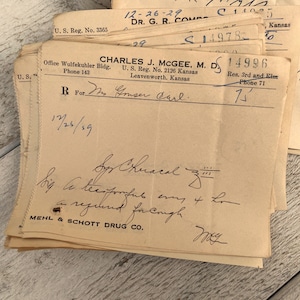 12-26-29
DR. G. R. COMBS
U. S. Reg. No. 3365
S 14978
Office Wolfskuhler Bldg.
Phone 143
CHARLES J. McGEE, M. D.
U. S. Reg. No. 2126 Kansas
Leavenworth, Kansas
14996
Res. 2nd and
Phone 71
R For Mr.
75
12/26/29
Syr Cheracol
Sig A teaspoonful every 4 hrs
as required for cough
McG
MEHL & SCHOTT DRUG CO.